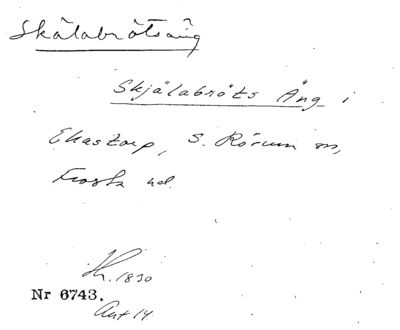 Skälabrötsäng
Skjälabröts Äng i
Ekastorp, S. Rörum sn,
Frosta hd.
1830
Nr 6743.
Akt 14.